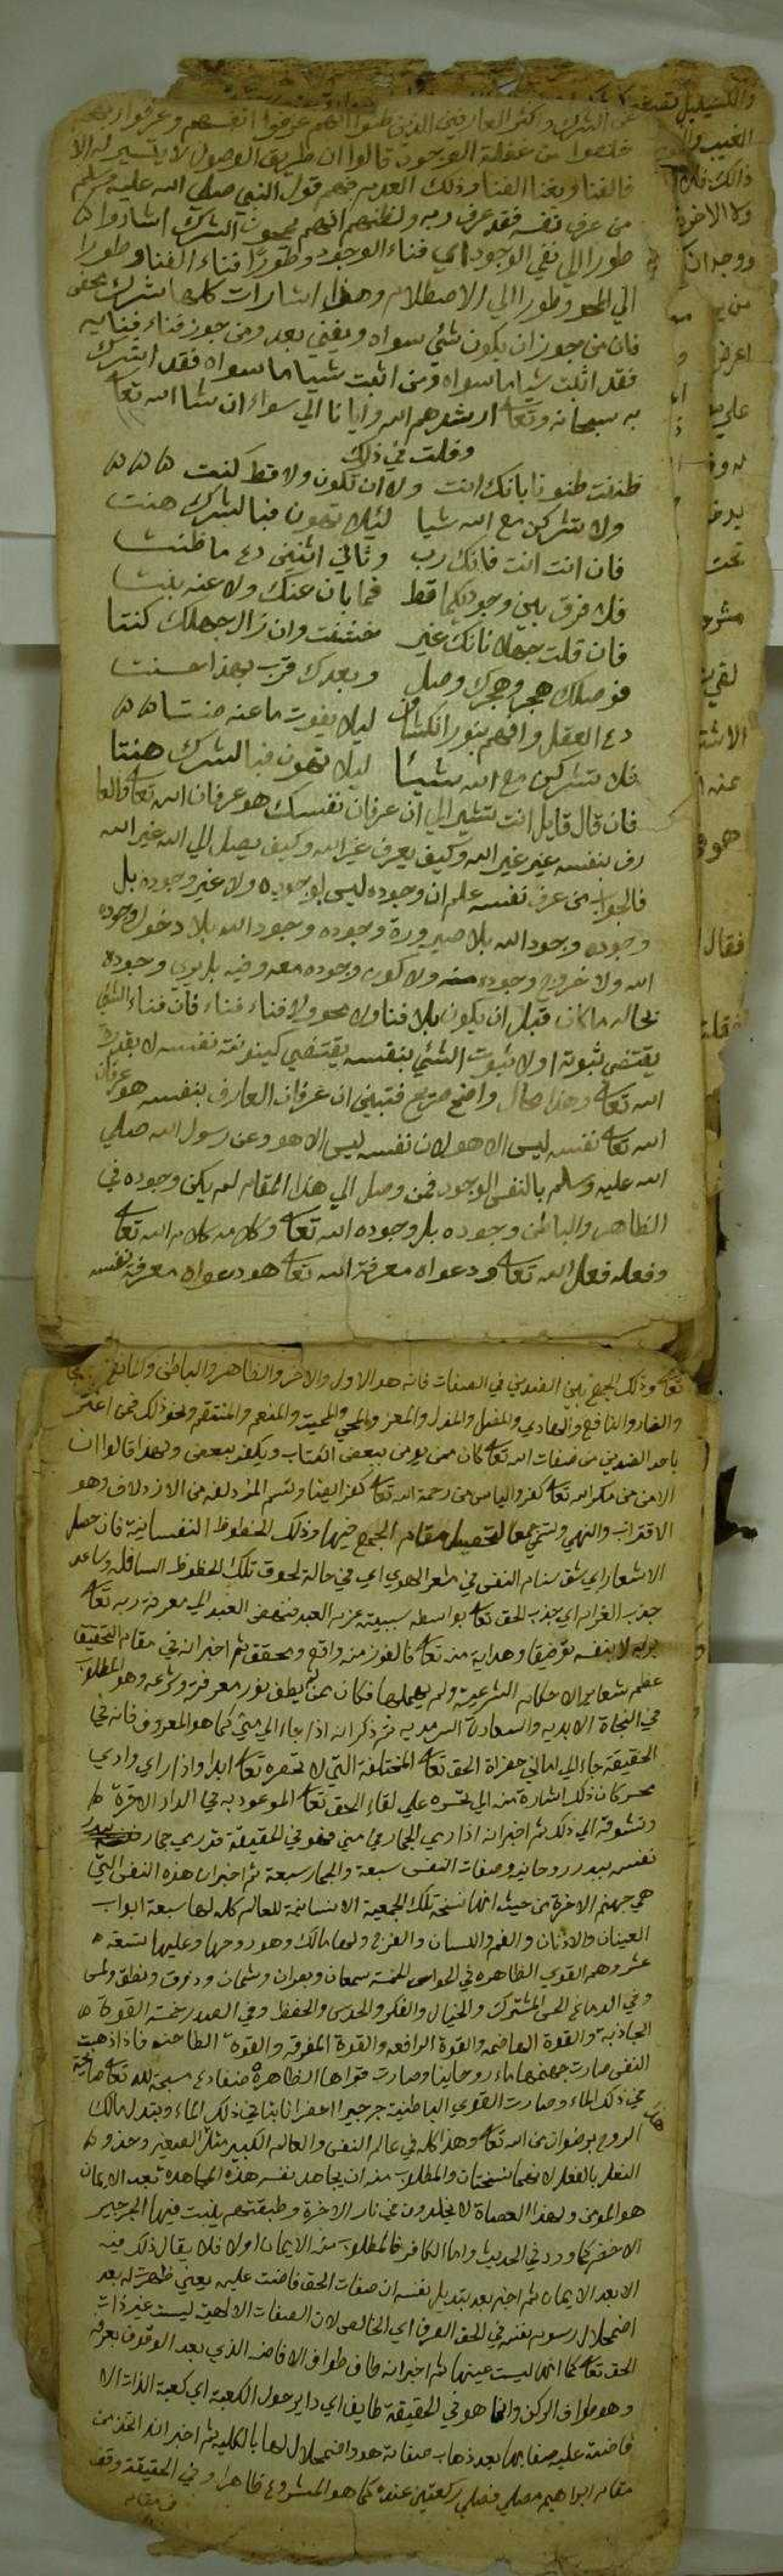 والشرك وكثر العارفين الذين ظنوا انهم عرفوا انفسهم وعرفوا ربهم
خلصوا من غفلة الوجود قالوا ان طريق الوصول لا يتيسر له الا
فالفنا وبفنا الفنا وذلك لعدم فهم قول النبي صلي الله عليه وسلم
من عرف نفسه فقد عرف ربه ولظنهم انهم يمحون الشرك اشاروا
طورا الي نفي الوجود اي فناء الوجود وطورا فناء الفنا وطورا
الي المحو وطورا الي الاصطلام وهذا اشارات كلها شرك محض
فان من جوز ان يكون شئي سواه ويفني بعد ومن جوز فناء فنايه
فقد اثبت شيا ما سواه ومن اثبت شيا ما سواه فقد اشرك
به سبحانه وتعا ارشدهم الله وايانا الي سواء ان شا الله تعا
وقلت في ذلك
ظننت ظنونا بانك انت ولا ان تكون ولا قط كنت
ولا تشركن مع الله شيا لئلا تهون فبالشرك هنت
فان انت انت فانك رب وثاني اثنين دع ما ظنت
فلا فرق بين وجوديكما قط فما بان عنك ولا عنه بنت
فان قلت جهلا نانك غير خشفت وان زال جهلك كنتا
فوصلك هجر وهجرك وصل وبعدك قرب بهذا حسنت
دع العقل وافهم بنور انكشاف ليلا يفوت ما عنه صنتا
فلا تشركن مع الله شيئا ليلا تهون فبالشرك هنتا
فان قال قايل انت تشير الي ان عرفان نفسك هو عرفان الله تعا والعا
رف بنفسه غير غير الله وكيف يعرف غير الله وكيف يصل الي الله غير الله
فالجواب من عرف نفسه علم ان وجوده ليس بوجوده ولا غير وجوده بل
وجوده وجود الله بلا صيرورة وجوده وجود الله بلا دخول وجوده
الله ولا خروج وجوده منه ولا كون وجوده معه وفيه بل يري وجوده
بحاله ما كان قبل ان يكون بلا فنا ولا محو ولا فناء فناء فان فناء الشئي
يقتضي ثبوته اولا ثبوت الشئي بنفسه يقتضي كينونته نفسه لا بقدرة
الله تعا وهذا محال واضح صريح فتبين ان عرفان العارف بنفسه هو عرفان
الله تعا نفسه ليس الا هو لان نفسه ليس الا هو وعن رسول الله صلي
الله عليه وسلم بالنفس الوجود فمن وصل الي هذا المقام لم يكن وجوده في
الظاهر والباطن وجوده بل وجوده الله تعا وكلامه كلام الله تعا
وفعله فعل الله تعا ودعواه معرفة الله تعا هو دعواه معرفة نفسه
تعا وذلك الجمع بين الضدين في الصفات فانه هو الاول والاخر والظاهر والباطن والمانع
والضار والنافع والهادي والمضل والمذل والمعز والمحي والمميت والمنعم والمنتقم ونحو ذلك فمن
باحد الضدين من صفات الله تعا كان ممن يومن ببعض الكتاب ويكفر ببعض ولهذا قالوا ان
الامن من مكر الله تعا كفر والياس من رحمة الله تعا كفر ايضا وتسم المزدلفه من الازدلاف وهو
الاقتراب والنهي وتسمي جمعا لتحصيل مقام الجمع فيها وذلك الحظوظ النفسانية فان حصل
الاشعار اي شق سنام النفس في مشعر الهوي اي في حالة لحوق تلك الحظوظ السافله وساعد
جذب الغرام اي جذب الحق تعا بواسطه سببيته عزم العبد فنهض العبد الي معرفة ربه تعا
بربه لا بنفسه توفيقا وهداية منه تعا فالفوز منه واقع ومحقق ثم اخبر انه في مقام التحقيق
عظم شعاير الاحكام الشرعية ولم يهملها فكان ممن لم يطف نور معرفته وشرعه وهو المطلوب
في النجاة الابديه والسعادة السرمديه ثم ذكر انه اذا جاء الي مني كما هو المعروف فانه في
الحقيقة جاء الي اماني حضراة الحق تعا المختلفة التي لا تحصره تعا ابدا واذا راي وادي
محسر كان ذلك اشارة منه الي تحسره علي لقاء الحق تعا الموعود به في الدار الاخرة
وتشوقه الي ذلك ثم اخبر انه اذا رمي الجمار في مني فهو في الحقيقة قد رمي جمار
نفسه بيد روحانيه وصفات النفس سبعة والجمار سبعة ثم اخبر ان هذه النفس التي
هي جهنم الاخرة من حيث انها نسخة تلك الجمعية الانسانية للعالم كله لها سبعة ابواب
العينان والاذنان والفم واللسان والفرج ولها مالك وهو روحها وعليها تسعة
عشر وهم القوي الظاهره في الحواس الخمسة سمعان وبصران وشمان وذوق ونطق ولمس
وفي الدماغ الحس المشترك والخيال والفكر والحدس والحفظ وفي الصدر خمسة القوة
الجاذبة والقوة الهاضمه والقوة الرافعه والقوة المفرقه والقوة الطاحنه فاذا ذهبت
النفس صارت جهنمها ماء روحانيا وصارت قواها الظاهرة ضفادع مسبحة لله تعا صايحة
في ذلك الماء وصارت القوي الباطنية جرجيرا اخضرا نابتا في ذلك الماء وبتدل مالك
الروح برضوان من الله تعا وهذا كله في عالم النفس والعالم الكبير مثل الصغير وحذو
النعل بالنعل لانهما نسختان والمطلوب منه ان يجاهد نفسه هذه المجاهده بعد الايمان
هو المومن ولهذا العصاة لا يخلدون في نار الاخرة وطبقتهم ينبت فيها الجرجير
الاخضر كما ورد في الحديث واما الكافر فالمطلوب منه الايمان اولا فلا يقال ذلك فيه
الا بعد الايمان ثم اخبر بعد تبديل نفسه ان صفات الحق فاضت عليه يعني ظهرت له بعد
اضمحلال رسوم نفسه في الحق الصرف اي الخالص لان الصفات الالهية ليست غير ذات
الحق تعا كما انها ليست عينها ثم اخبر انه طاف طواف الافاضه الذي بعد الوقوف بعرفه
وهو طواف الركن وانما هو في الحقيقة طايف اي داير حول الكعبة اي كعبة الذات الا
فاضت عليه صفاتها بعد ذهاب صفاته هو واضمحلال لها بالكليه ثم اخبر انه اتخذ من
مقام ابراهيم مصلي فصلي ركعتين عنده كما هو المشروع ظاهرا وفي الحقيقة وقف
في مقام